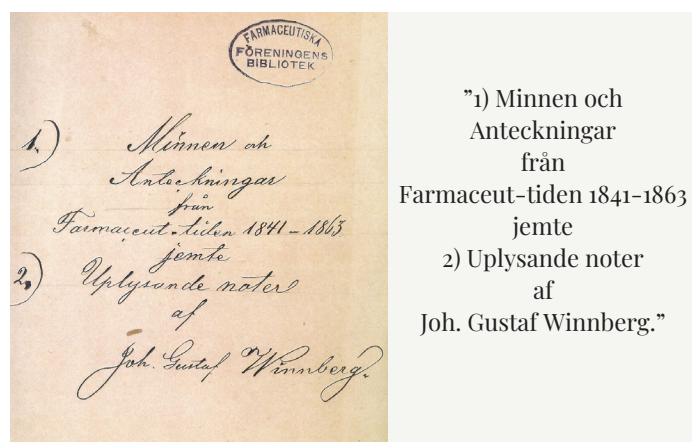 FARMACEUTISKA
FÖRENINGENS
BIBLIOTEK
1.) Minnen och
Anteckningar
från
Farmaceut-tiden 1841–1863
jemte
2.) Uplysande noter
af
Joh. Gustaf Winnberg.
”1) Minnen och
Anteckningar
från
Farmaceut-tiden 1841-1863
jemte
2) Uplysande noter
af
Joh. Gustaf Winnberg.”